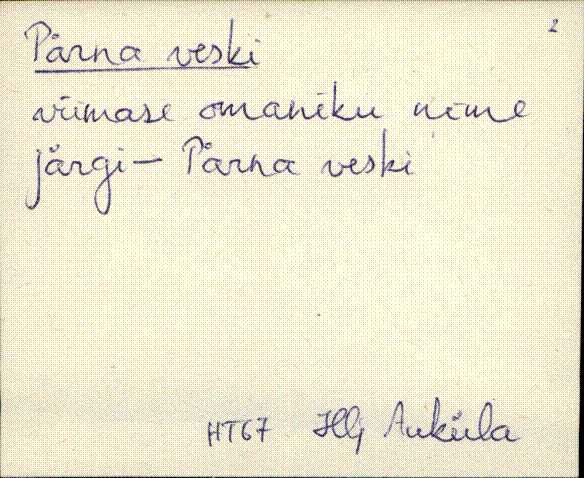 2
Pärna veski
viimase omaniku nime
järgi – Pärna veski
HT67 Hlj Auküla